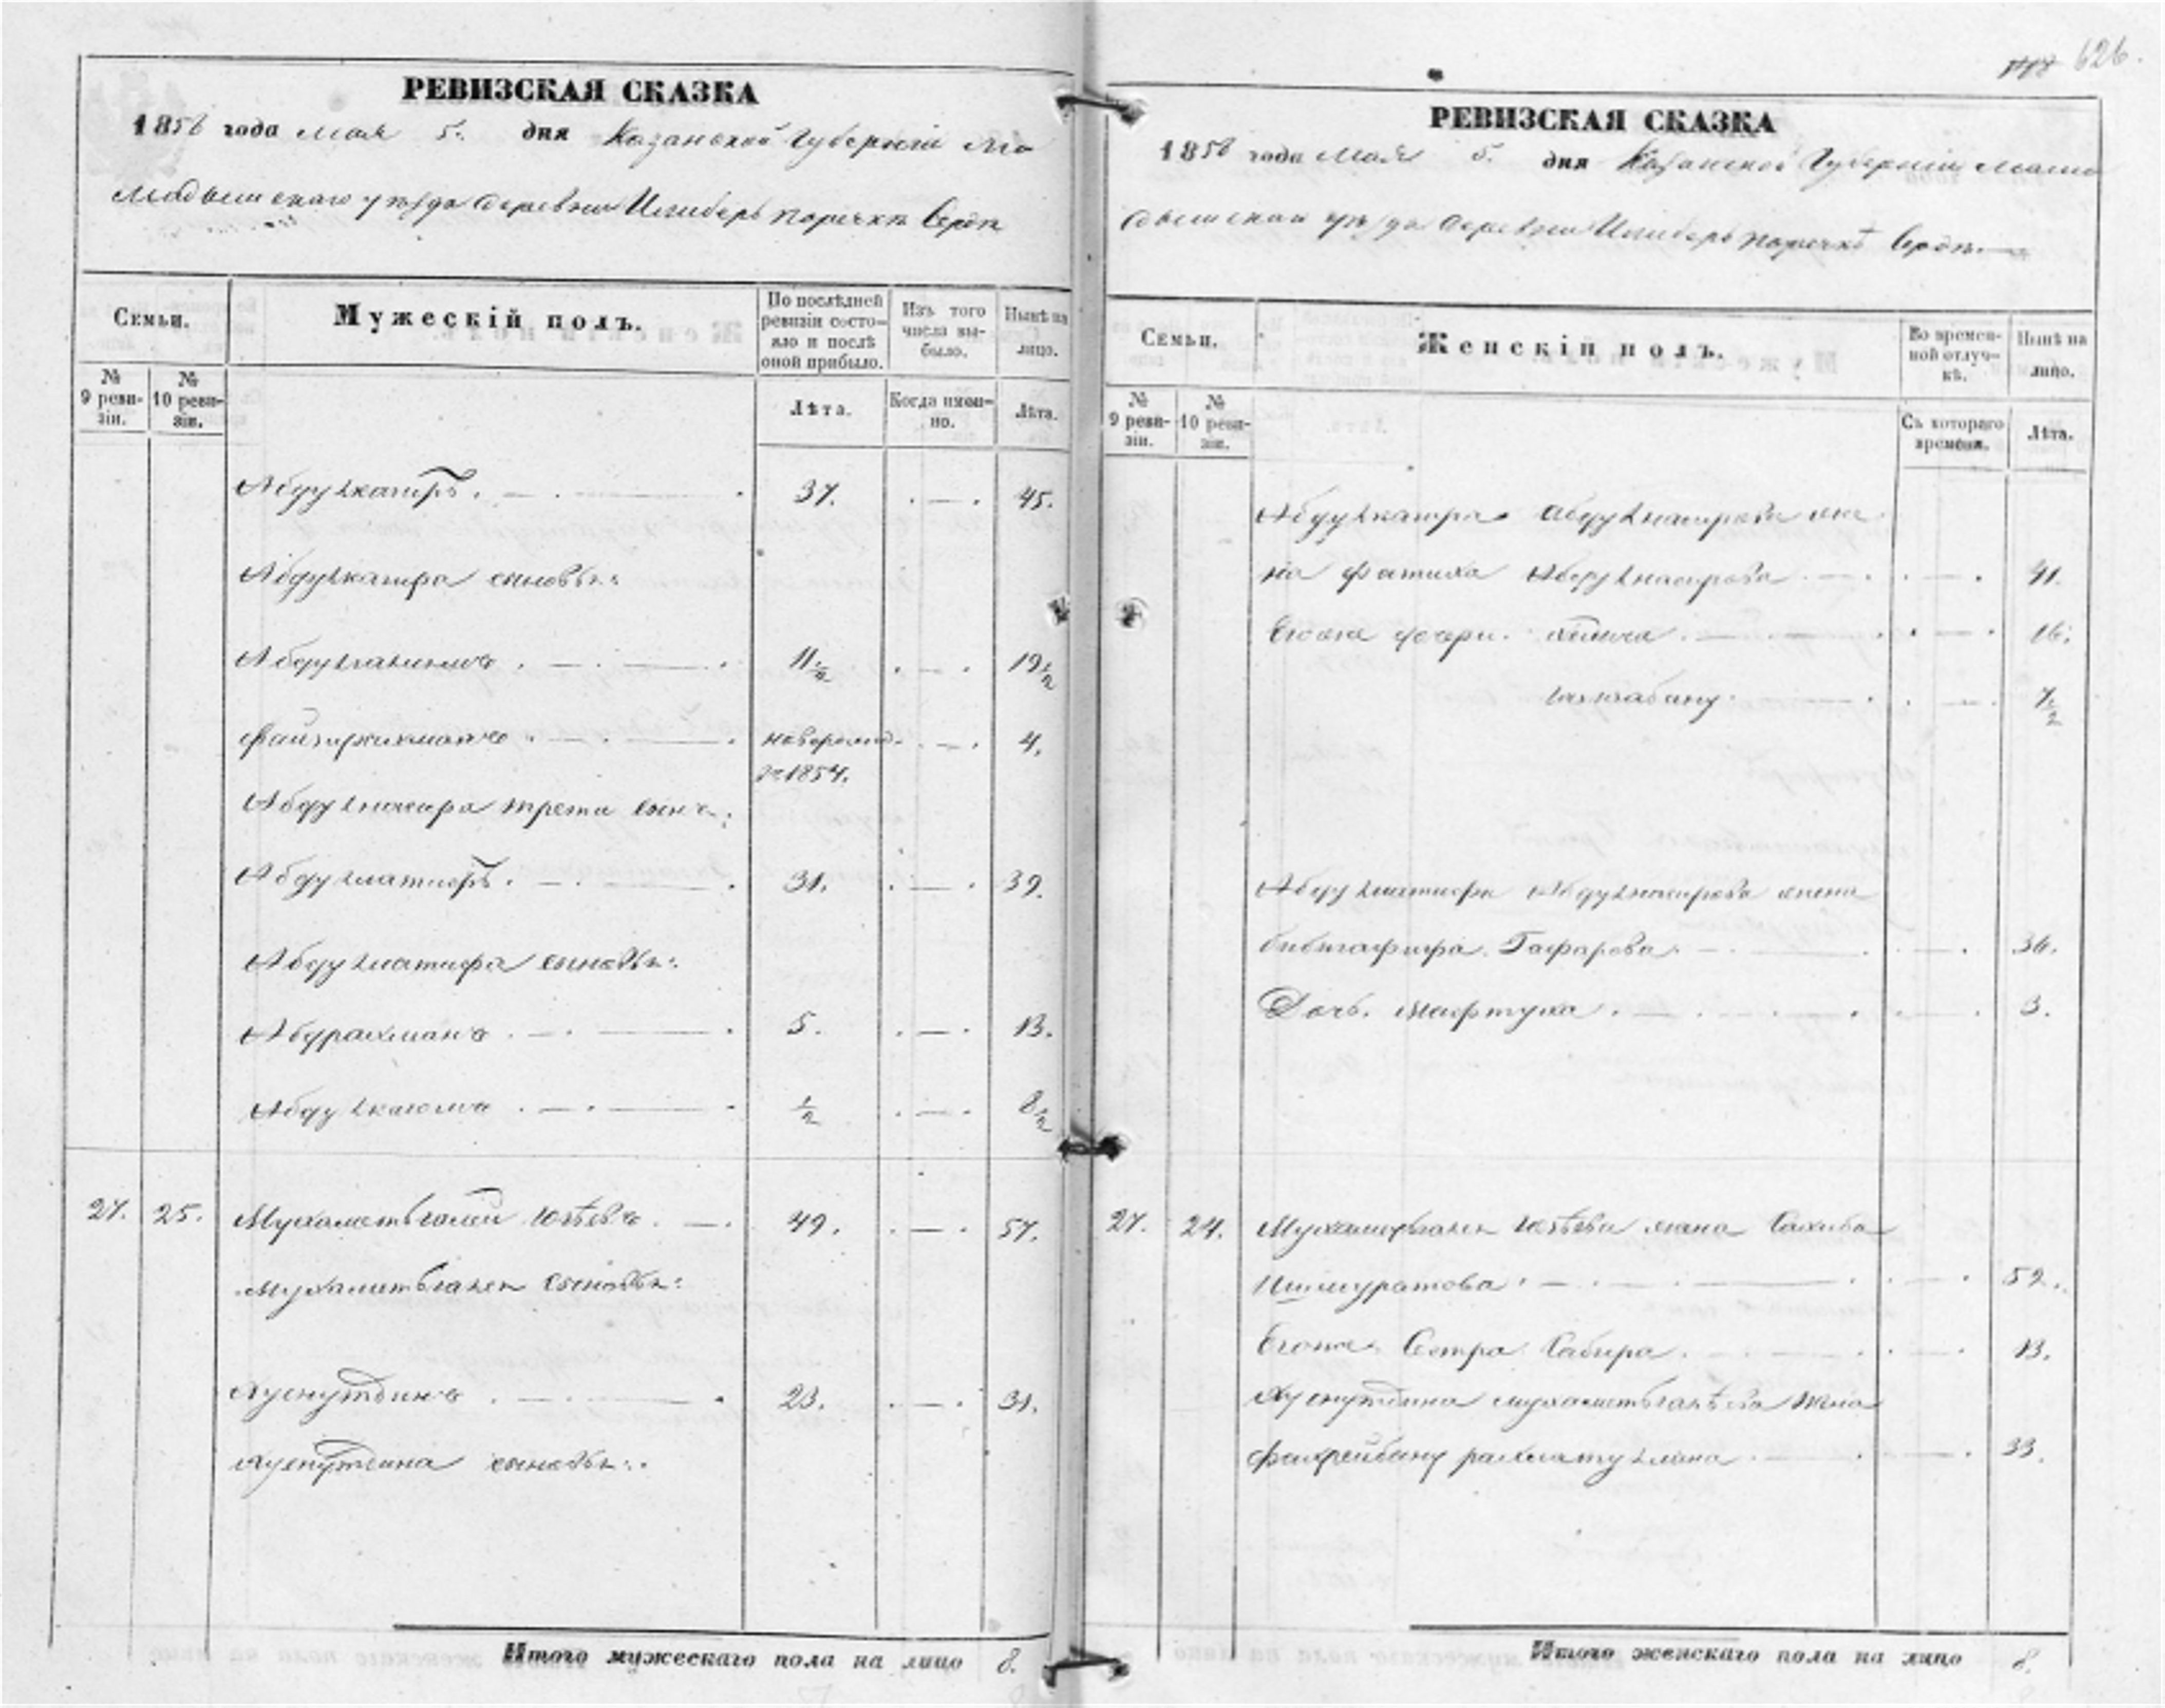 626.
РЕВИЗСКАЯ СКАЗКА
1858 года Мая 5. дня Казанской Губерніи Ма
мадышскаго уѣзда деревни поречкѣ
Семьи.
Мужескій полъ.
По послѣдней ревизіи состояло и послѣ оной прибыло.
Изъ того числа выбыло.
Нынѣ на лицо.
№ 9 ревизіи.
№ 10 ревизіи.
Лѣта.
Когда именно.
Лѣта.
Абдулкаиръ. 37. 45.
Абдулкаира сыновья:
Абдулхакимъ 11½ 19½
Файзирахманъ новорожд. 4.
1854.
Абдулнасира трети сынъ:
Абдуллатифъ. 31. 39.
Абдуллатифа сыновья:
Абдрахманъ 5. 13.
Абдулкаюмъ ½ 8½
27. 25. Мухаметьгалей 49. 57.
Мухаметьгалея сыновья:
Хуснутдинъ 23. 31.
Хуснутдина сыновья:
Итого мужескаго пола на лицо 8.
РЕВИЗСКАЯ СКАЗКА
1858 года Мая 5. дня Казанской Губерніи Мама
дышскаго уѣзда деревни поречкѣ
Семьи.
Женскій полъ.
Во временной отлучкѣ.
Нынѣ на лицо.
№ 9 ревизіи.
№ 10 ревизіи.
Съ котораго времени.
Лѣта.
Абдулкаира Абдулнасирова же
на Фатиха Абдулнасирова 41.
Егоже дочери. 16.
7½
Абдуллатифа Абдулнасирова жена
Гафарова 36.
Дочь. Мафтуха 3.
27. 24. Мухаметьгалея жена Сахиба
Ишмуратова 52.
Егоже Сестра Сабира 13.
Хуснутдина Мухаметьгалѣева Жена
33.
Итого женскаго пола на лицо 8.